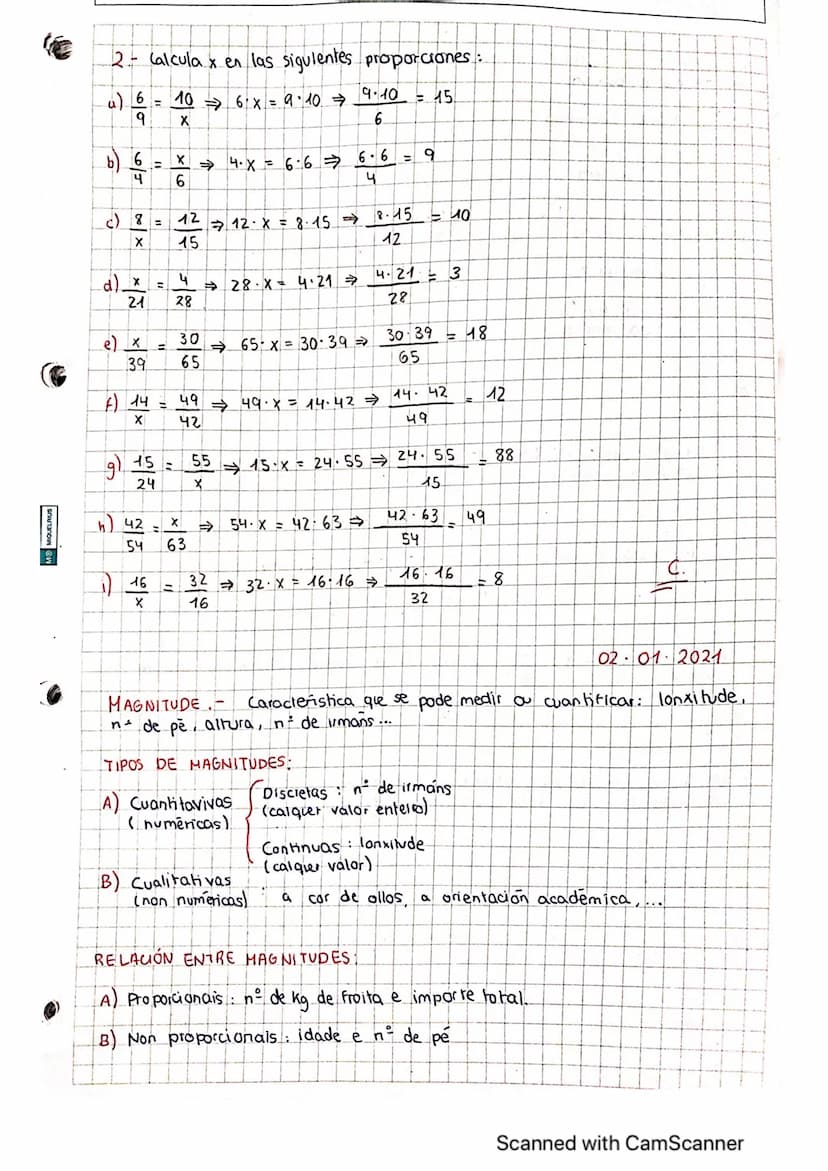 2.- Calcula x en las siguientes proporciones:
a) 6/9 = 10/x ⇒ 6·x = 9·10 ⇒ 9·10/6 = 15
b) 6/4 = x/6 ⇒ 4·x = 6·6 ⇒ 6·6/4 = 9
c) 8/x = 12/15 ⇒ 12·x = 8·15 ⇒ 8·15/12 = 10
d) x/21 = 4/28 ⇒ 28·x = 4·21 ⇒ 4·21/28 = 3
e) x/39 = 30/65 ⇒ 65·x = 30·39 ⇒ 30·39/65 = 18
f) 14/x = 49/42 ⇒ 49·x = 14·42 ⇒ 14·42/49 = 12
g) 15/24 = 55/x ⇒ 15·x = 24·55 ⇒ 24·55/15 = 88
h) 42/54 = x/63 ⇒ 54·x = 42·63 ⇒ 42·63/54 = 49
i) 16/x = 32/16 ⇒ 32·x = 16·16 ⇒ 16·16/32 = 8
C.
MIQUELRIUS
02·01·2021
MAGNITUDE.- Caracleristica que se pode medir ou cuantificar: lonxitude,
nº de pé, altura, nº de irmáns...
TIPOS DE MAGNITUDES:
A) Cuantitavivas
(numéricas)
Discretas: nº de irmáns
(calquer valor enteiro)
Continuas: lonxitude
(calquer valor)
B) Cualitativas
(non numéricas) : a cor de ollos, a orientación académica,...
RELACIÓN ENTRE MAGNITUDES:
A) Proporcionais: nº de kg de froita e importe total.
B) Non proporcionais: idade e nº de pé
Scanned with CamScanner